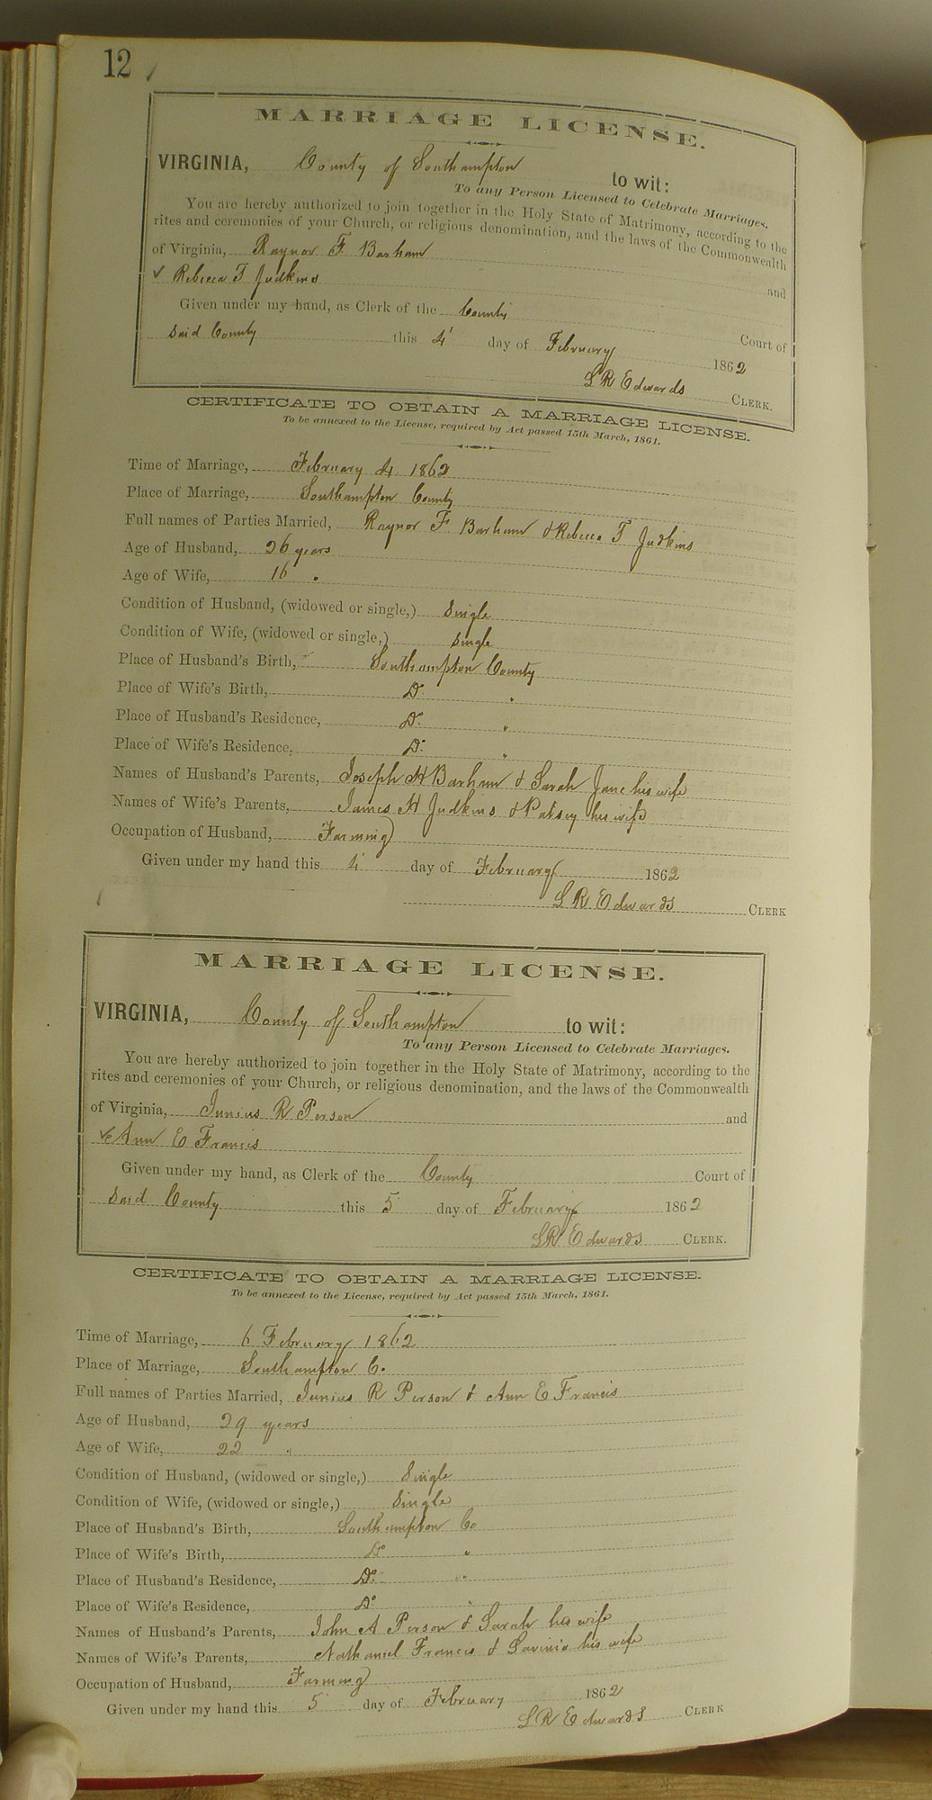 12
MARRIAGE LICENSE.
VIRGINIA, County of Southampton to wit:
To any Person Licensed to Celebrate Marriages.
You are hereby authorized to join together in the Holy State of Matrimony, according to the
rites and ceremonies of your Church, or religious denomination, and the laws of the Commonwealth
of Virginia, Raynor F Barham and
✓ Rebecca T Judkins
Given under my hand, as Clerk of the County Court of
said County this 4 day of February 1862
L R Edwards CLERK.
CERTIFICATE TO OBTAIN A MARRIAGE LICENSE.
To be annexed to the License, required by Act passed 15th March, 1861.
Time of Marriage, February 4 1862
Place of Marriage, Southampton County
Full names of Parties Married, Raynor F. Barham & Rebecca T Judkins
Age of Husband, 26 years
Age of Wife, 16 "
Condition of Husband, (widowed or single,) Single
Condition of Wife, (widowed or single,) Single
Place of Husband's Birth, Southampton County
Place of Wife's Birth, Do "
Place of Husband's Residence, Do "
Place of Wife's Residence, Do "
Names of Husband's Parents, Joseph H Barham & Sarah Jane his wife
Names of Wife's Parents, James H Judkins & Patsey his wife
Occupation of Husband, Farming
Given under my hand this 4 day of February 1862
L R Edwards CLERK
MARRIAGE LICENSE.
VIRGINIA, County of Southampton to wit:
To any Person Licensed to Celebrate Marriages.
You are hereby authorized to join together in the Holy State of Matrimony, according to the
rites and ceremonies of your Church, or religious denomination, and the laws of the Commonwealth
of Virginia, Junius R Person and
✓ Ann E Francis
Given under my hand, as Clerk of the County Court of
said County this 5 day of February 1862
L R Edwards CLERK.
CERTIFICATE TO OBTAIN A MARRIAGE LICENSE.
To be annexed to the License, required by Act passed 15th March, 1861.
Time of Marriage, 6 February 1862
Place of Marriage, Southampton Co.
Full names of Parties Married, Junius R Person & Ann E Francis
Age of Husband, 29 years
Age of Wife, 22 "
Condition of Husband, (widowed or single,) Single
Condition of Wife, (widowed or single,) Single
Place of Husband's Birth, Southampton Co
Place of Wife's Birth, Do "
Place of Husband's Residence, Do "
Place of Wife's Residence, Do "
Names of Husband's Parents, John A Person & Sarah his wife
Names of Wife's Parents, Nathaniel Francis & Lavinia his wife
Occupation of Husband, Farming
Given under my hand this 5 day of February 1862
L R Edwards CLERK